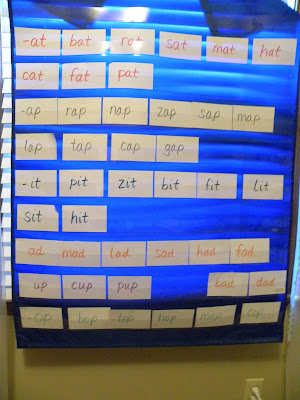 -at bat rat sat mat hat
cat fat pat
-ap rap nap zap sap map
lap tap cap gap
-it pit zit bit fit lit
sit hit
ad mad lad sad had fad
up cup pup bad dad
-op bop top hop mop cop